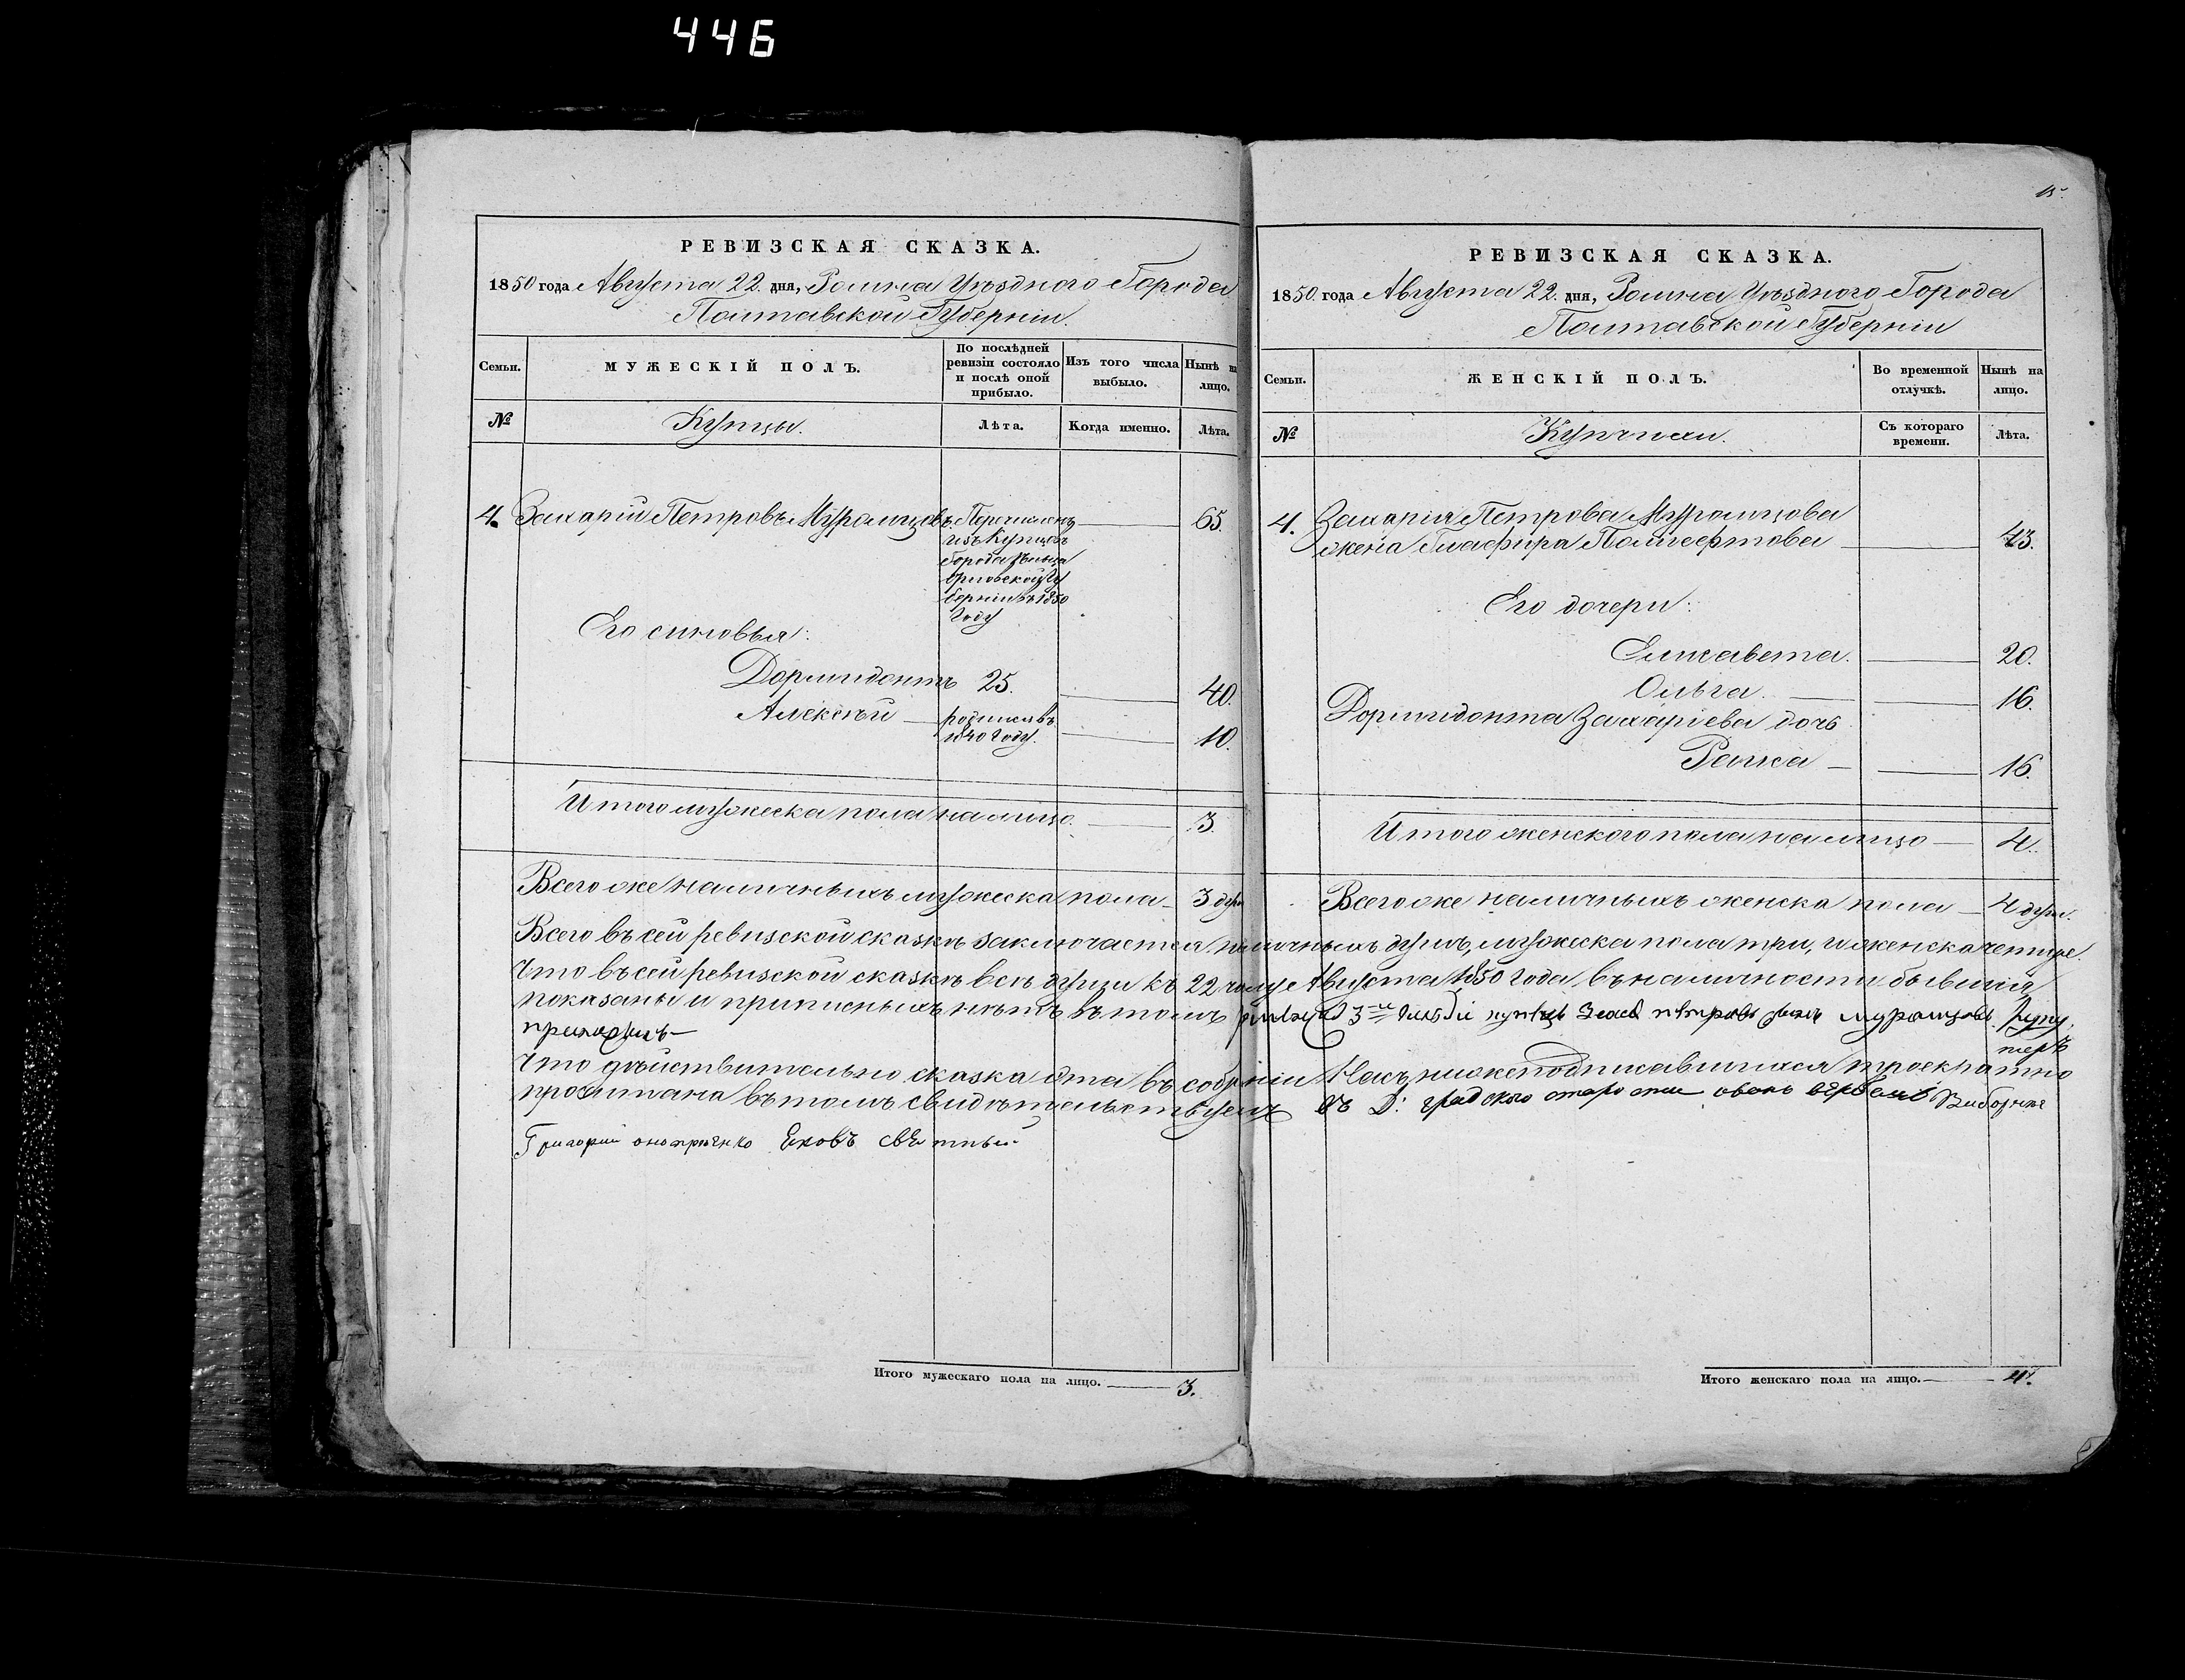 446
РЕВИЗСКАЯ СКАЗКА.
1850 года Августа 22. дня, Ромна Уѣзднаго Города
Полтавской Губерніи.
Семьи.
МУЖЕСКІЙ ПОЛЪ.
По послѣдней ревизіи состояло и послѣ оной прибыло.
Изъ того числа выбыло.
Нынѣ на лицо.
№
Купцы.
Лѣта.
Когда именно.
Лѣта.
4. Захарій Петровъ Муромцовъ Перечисленъ 65.
изъ Купцовъ
Города Ельца
Орловской Гу
берніи въ 1850
Году
Его синовья:
Дормидонтъ 25. 40.
Алексѣй родился въ 10.
1840 Году.
Итого мужеска пола на лицо. 3.
Всего же наличныхъ мужеска пола 3 душ
РЕВИЗСКАЯ СКАЗКА.
15
1850. года Августа 22. дня, Ромна Уѣзднаго Города
Полтавской Губерніи
Семьи.
ЖЕНСКІЙ ПОЛЪ.
Во временной отлучкѣ.
Нынѣ на лицо.
№
Купчихи.
Съ котораго времени.
Лѣта.
4. Захарія Петрова Муромцова
жена Глафира 43.
Его дочери:
Елисавета. 20.
Ольга. 16.
Дормидонта Захаріева дочь
Раиса 16.
Итого женского пола на лицо 4.
Всего же наличныхъ женска пола 4 душ.
Всего въ сей ревизской сказкѣ заключается наличныхъ душъ, мужеска пола три, и женска четире.
Что въ сей ревизской сказкѣ всѣ души къ 22 числу Августа 1850 года въ наличности бывшія
показаны и приписныхъ нѣтъ въ томъ 3 купецъ муромцовъ Руку
приложилъ
Что дѣйствительно сказка эта въ собраніи Насъ нижеподписавшихся троекратно
прочитана въ томъ свидѣтельствуемъ градского Виборніе
Григорій
Итого мужескаго пола на лицо. 3.
Итого женскаго пола на лицо. 4.